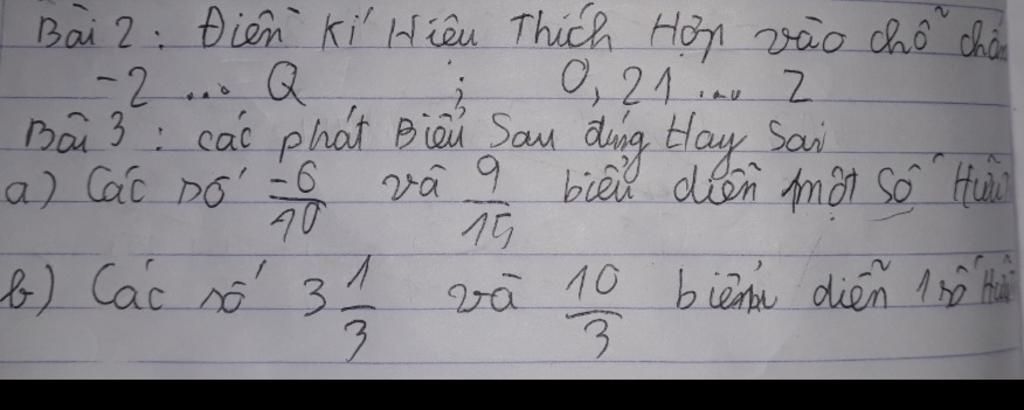 Bài 2 : Điền Kí Hiêu Thích Hợp vào chỗ chấ
-2 ... Q ; 0,21 ... Z
Bài 3 : các phát Biểu Sau đúng Hay Sai
a) Các số -6/10 và 9/15 biểu diễn một số Hữu
b) Các số 3 1/3 và 10/3 biểu diễn 1 số Hữu